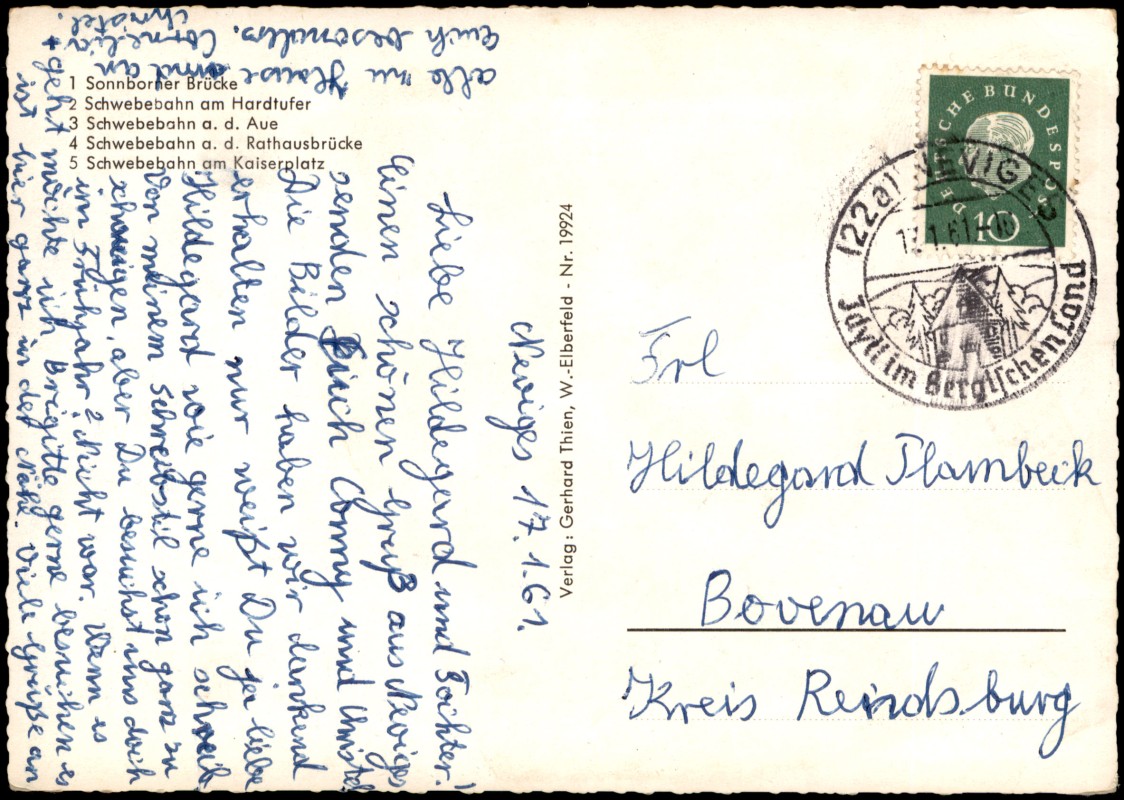 1 Sonnborner Brücke
2 Schwebebahn am Hardtufer
3 Schwebebahn a. d. Aue
4 Schwebebahn a. d. Rathausbrücke
5 Schwebebahn am Kaiserplatz
Neviges 17.1.61.
Liebe Hildegard und Tochter!
Einen schönen Gruß aus Neviges
senden Euch Conny und Christel
Die Bilder haben wir dankend
erhalten nur weißt Du ja liebe
Hildegard wie gerne ich schreib
Von meinem Schreibstil schon ganz zu
schweigen, aber Du besuchst uns doch
im Frühjahr? Nicht war. Wenn es
geht möchte ich Brigitte gerne besuchen es
ist hier ganz in der Nähe. Viele Grüße an
alle zu Hause und an
Euch besonders. Cornelia
+ Christel.
Verlag: Gerhard Thien, W.-Elberfeld - Nr. 19924
DEUTSCHE BUNDESPOST
10
(22a) NEVIGES
17.1.61-18
Idyll im Bergischen Land
Frl
Hildegard Plambeck
Bovenau
Kreis Rendsburg